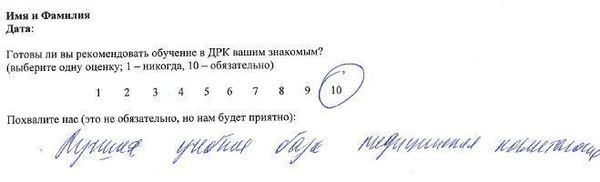 Имя и Фамилия
Дата:
Готовы ли вы рекомендовать обучение в ДРК вашим знакомым?
(выберите одну оценку; 1 – никогда, 10 – обязательно)
1 2 3 4 5 6 7 8 9 10
Похвалите нас (это не обязательно, но нам будет приятно):
Лучшая учебная база медицинская косметология